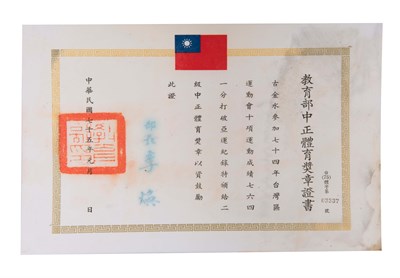 教育部中正體育獎章證書
古金水參加七十四年台灣區
運動會十項運動成績七六四
一分打破亞運紀錄特頒給二
級中正體育獎章以資鼓勵
此證
部長 李煥
中華民國七十五年元月 日